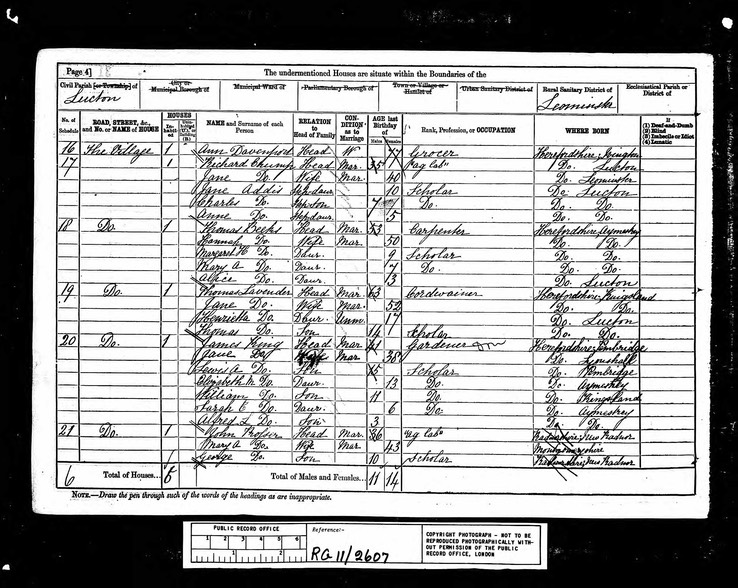 Page 4]
The undermentioned Houses are situate within the Boundaries of the
Civil Parish [or Township] of
Lucton
City or Municipal Borough of
Municipal Ward of
Parliamentary Borough of
Town or Village or Hamlet of
Urban Sanitary District of
Rural Sanitary District of
Leominster
Ecclesiastical Parish or District of
No. of Schedule
ROAD, STREET, &c., and No. or NAME of HOUSE
HOUSES
Inhabited
NAME and Surname of each Person
RELATION to Head of Family
CONDITION as to Marriage
AGE last Birthday of
Males
Females
Rank, Profession, or OCCUPATION
WHERE BORN
If
(1) Deaf-and-Dumb
(2) Blind
(3) Imbecile or Idiot
(4) Lunatic
16 The Village 1 Ann Davenport Head W 77 Grocer Herefordshire;
17 1 Richard Head Mar. 35 "ag lab" Do. Lucton
Jane Do. Wife Mar. 40 Do. Leominster
Jane Addis Step-daur. 10 Scholar Do. Lucton
Charles Do. Step-son 7 Do. Do. Do.
Anne Do. Step-daur. 5 Do. Do.
18 Do. 1 Thomas Beeks Head Mar. 53 Carpenter Herefordshire Aymestry
Hannah Do. Wife Mar. 50 Do. Do.
Margaret H Do. Daur. 9 Scholar Do. Do.
Mary A Do. Daur. 7 Do. Do. Do.
Alice Do. Daur. 3 Do. Lucton
19 Do. 1 Thomas Lavender Head Mar. 63 Cordwainer Herefordshire; Kingsland
Jane Do. Wife Mar. 52 Do. Do.
Henrietta Do. Daur. Unm 17 Do. Lucton
Thomas Do. Son 14 Scholar Do. Do.
20 Do. 1 James King Head Mar. 41 Gardener Herefordshire; Pembridge
Jane Do. Wife Mar. 38 Do. Lyonshall
Lewis A Do. Son 15 Scholar Do. Pembridge
Elizabeth M Do. Daur. 13 Do. Do. Aymestrey
William Do. Son 11 Do. Do. Kingsland
Sarah E Do. Daur. 6 Do. Do. Aymestrey
Alfred L Do. Son 3 Do. Do.
21 Do. 1 John Head Mar. 36 "ag lab" Radnorshire; New Radnor
Mary A Do. Wife Mar 43 Montgomeryshire
George Do. Son 10 Scholar Radnorshire; New Radnor
6 Total of Houses... Total of Males and Females... 11 14
NOTE.—Draw the pen through such of the words of the headings as are inappropriate.
PUBLIC RECORD OFFICE
1 2 3 4 5 6
1 2
Reference:-
RG 11/2607
COPYRIGHT PHOTOGRAPH - NOT TO BE REPRODUCED PHOTOGRAPHICALLY WITHOUT PERMISSION OF THE PUBLIC RECORD OFFICE, LONDON